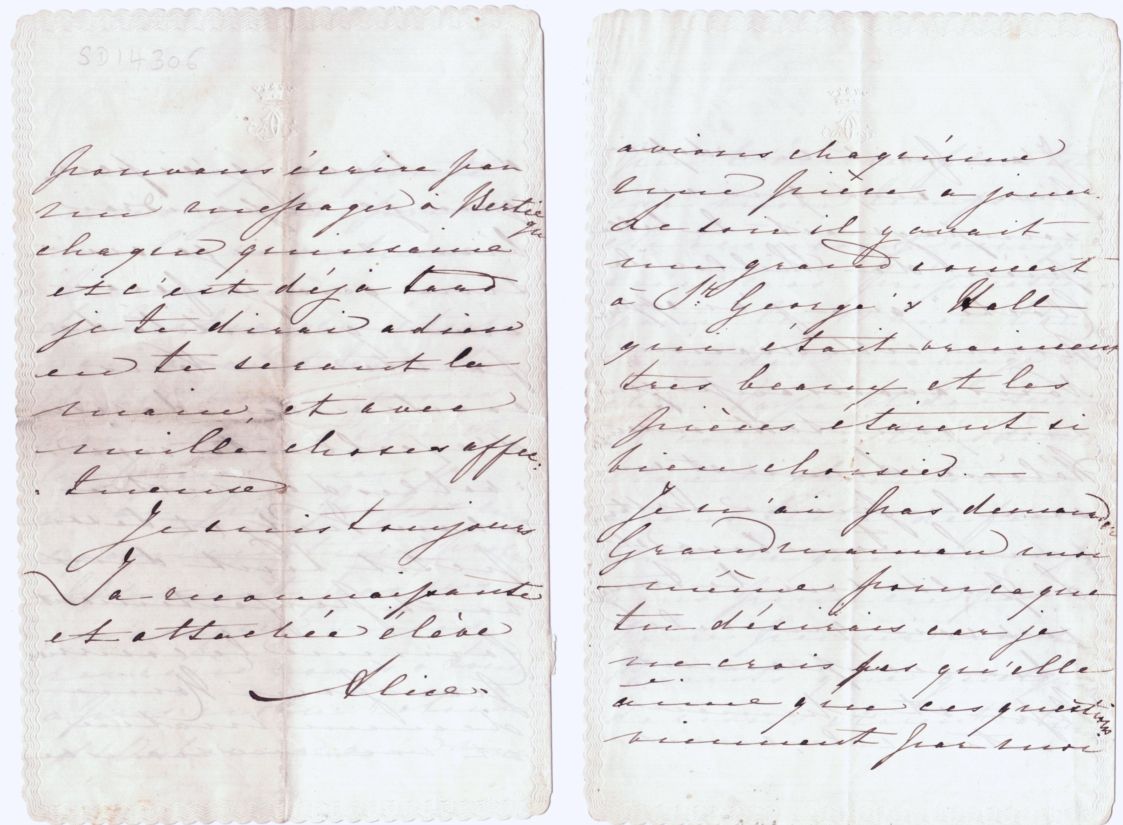 SD14306
pouvons écrire par
un messager à Bertie
que
chaque quinsaine
et c'est déjà tard
je te dirai adieu
en te serant la
main, et avec
mille choses affec-
tueuse
Je suis toujours
Ta reconnaissante
et attachée élève
Alice.
avions chaqu'une
une pièce a jouer.
Le soir il y avait
un grand concert
à St. George's Hall
qui était vraiment
tres beaux et les
pièces étaient si
bien choisies. —
Je n'ai pas demandé
Grandmaman moi
-même pour ce que
tu désirais car je
ne crois pas qu'elle
aime que ces questions
viennent par moi